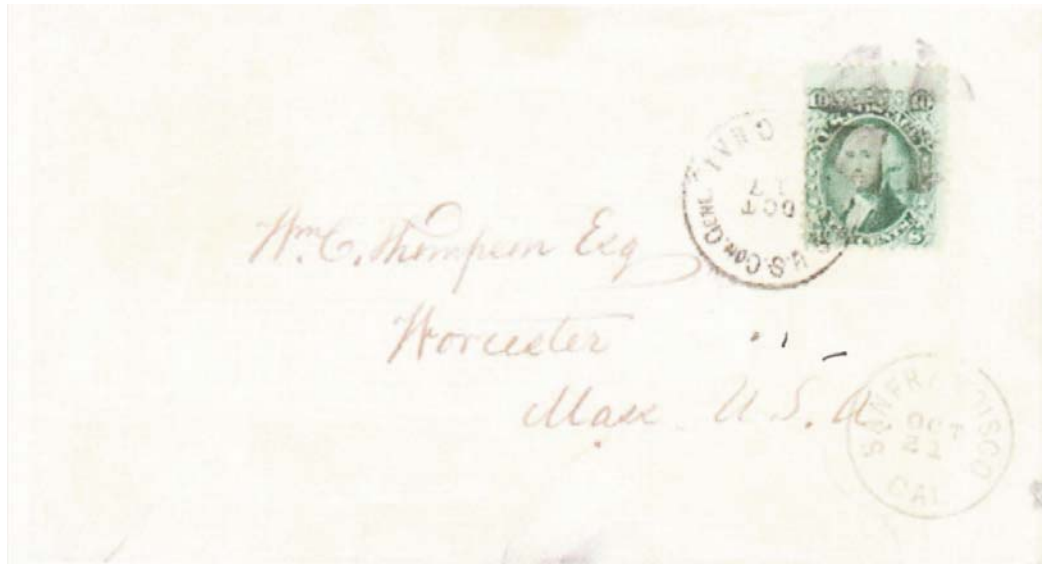 OCT
17
U.S. CON. GENL
Wm. C. Thompson Esq
Worcester
Mass. U.S.A
SAN FRANCISCO
OCT
CAL